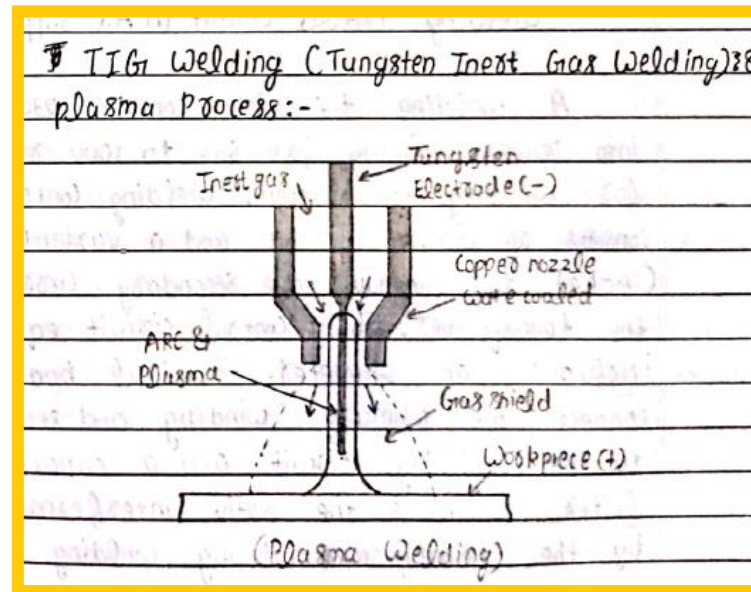 TIG Welding (Tungsten Inert Gas Welding)
plasma Process:-
Tungsten
Electrode (-)
Inert gas
Copper nozzle
Water cooled
ARC &
Plasma
Gas shield
Workpiece (+)
(Plasma Welding)